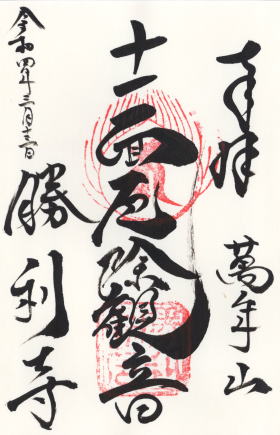 奉拝
萬年山
十一面厄除観音
勝利寺
令和四年三月十三日